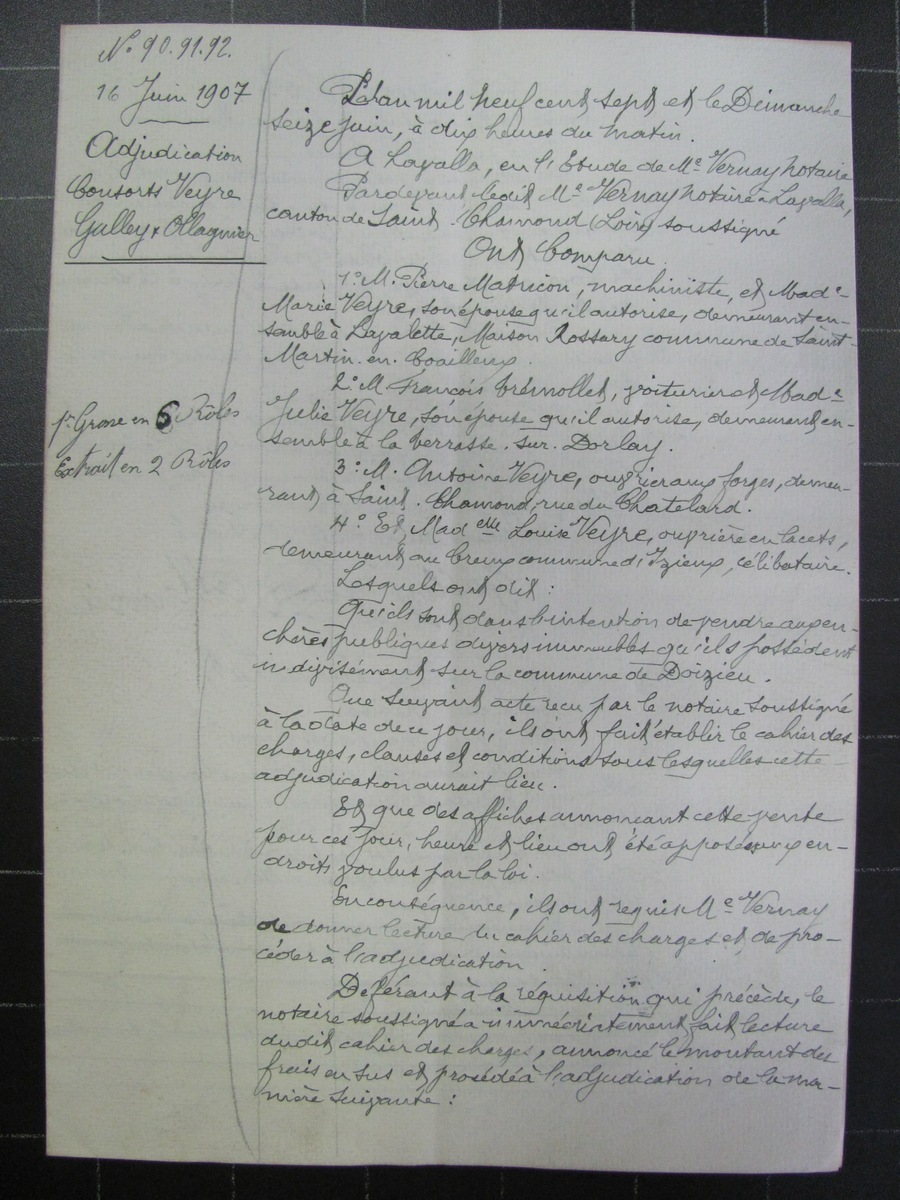 N° 90.91.92.
16 Juin 1907
Adjudication
Consorts Veyre
Galley & Ollagnier
1re Grosse en 6 Rôles
Extrait en 2 Rôles
L'an mil neuf cent sept et le Dimanche
seize juin, à dix heures du matin.
A Lavalla, en l'Etude de Me Vernay notaire
Pardevant ledit Me Vernay notaire à Lavalla,
canton de Saint-Chamond (Loire) soussigné
Ont Comparu
1° M. Pierre Matricon, machiniste, et Made
Marie Veyre, son épouse qu'il autorise, demeurant en-
semble à Layalette, Maison Rossary commune de Saint-
Martin-en-Coailleux.
2° M. François Crémollet, voiturier et Made
Julie Veyre, son épouse qu'il autorise, demeurant en-
semble à la Terrasse-sur-Dorlay.
3° M. Antoine Veyre, ouvrier aux forges, demeu-
rant à Saint-Chamond, rue du Chatelard.
4° Et Madelle Louise Veyre, ouvrière en lacets,
demeurant au Creux commune d'Izieux, célibataire.
Lesquels ont dit :
Qu'ils sont dans l'intention de vendre aux en-
chères publiques divers immeubles qu'ils possèdent
indivisément sur la commune de Doizieu.
Que suivant acte reçu par le notaire soussigné
à la date de ce jour, ils ont fait établir le cahier des
charges, clauses et conditions sous lesquelles cette
adjudication aurait lieu.
Et que des affiches annonçant cette vente
pour ces jour, heure et lieu ont été apposé aux en-
droits voulus par la loi.
En conséquence, ils ont requis Me Vernay
de donner lecture du cahier des charges et de pro-
céder à l'adjudication.
Deférant à la réquisition qui précède, le
notaire soussigné a immédiatement fait lecture
dudit cahier des charges, annoncé le montant des
frais en sus et procédé à l'adjudication de la ma-
nière suivante :